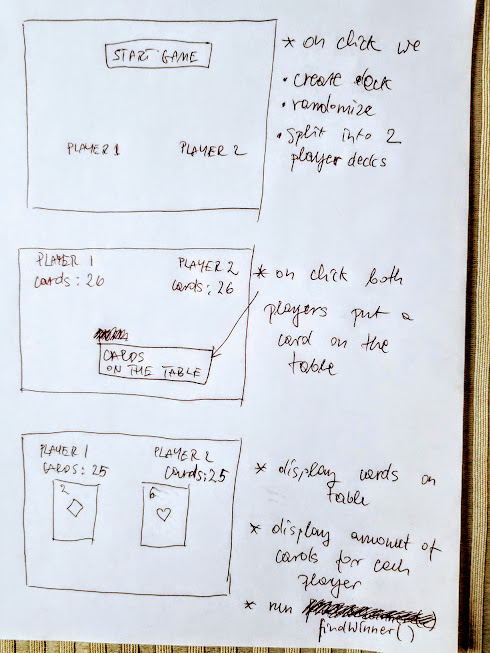 START GAME
PLAYER 1
PLAYER 2
* on click we
• create deck
• randomize
• split into 2
player decks
PLAYER 1
cards: 26
PLAYER 2
cards: 26
CARDS
ON THE TABLE
* on click both
players put a
card on the
table
PLAYER 1
CARDS: 25
PLAYER 2
cards: 25
2
6
* display cards on
table
* display amount of
cards for each
player
* run
findWinner()